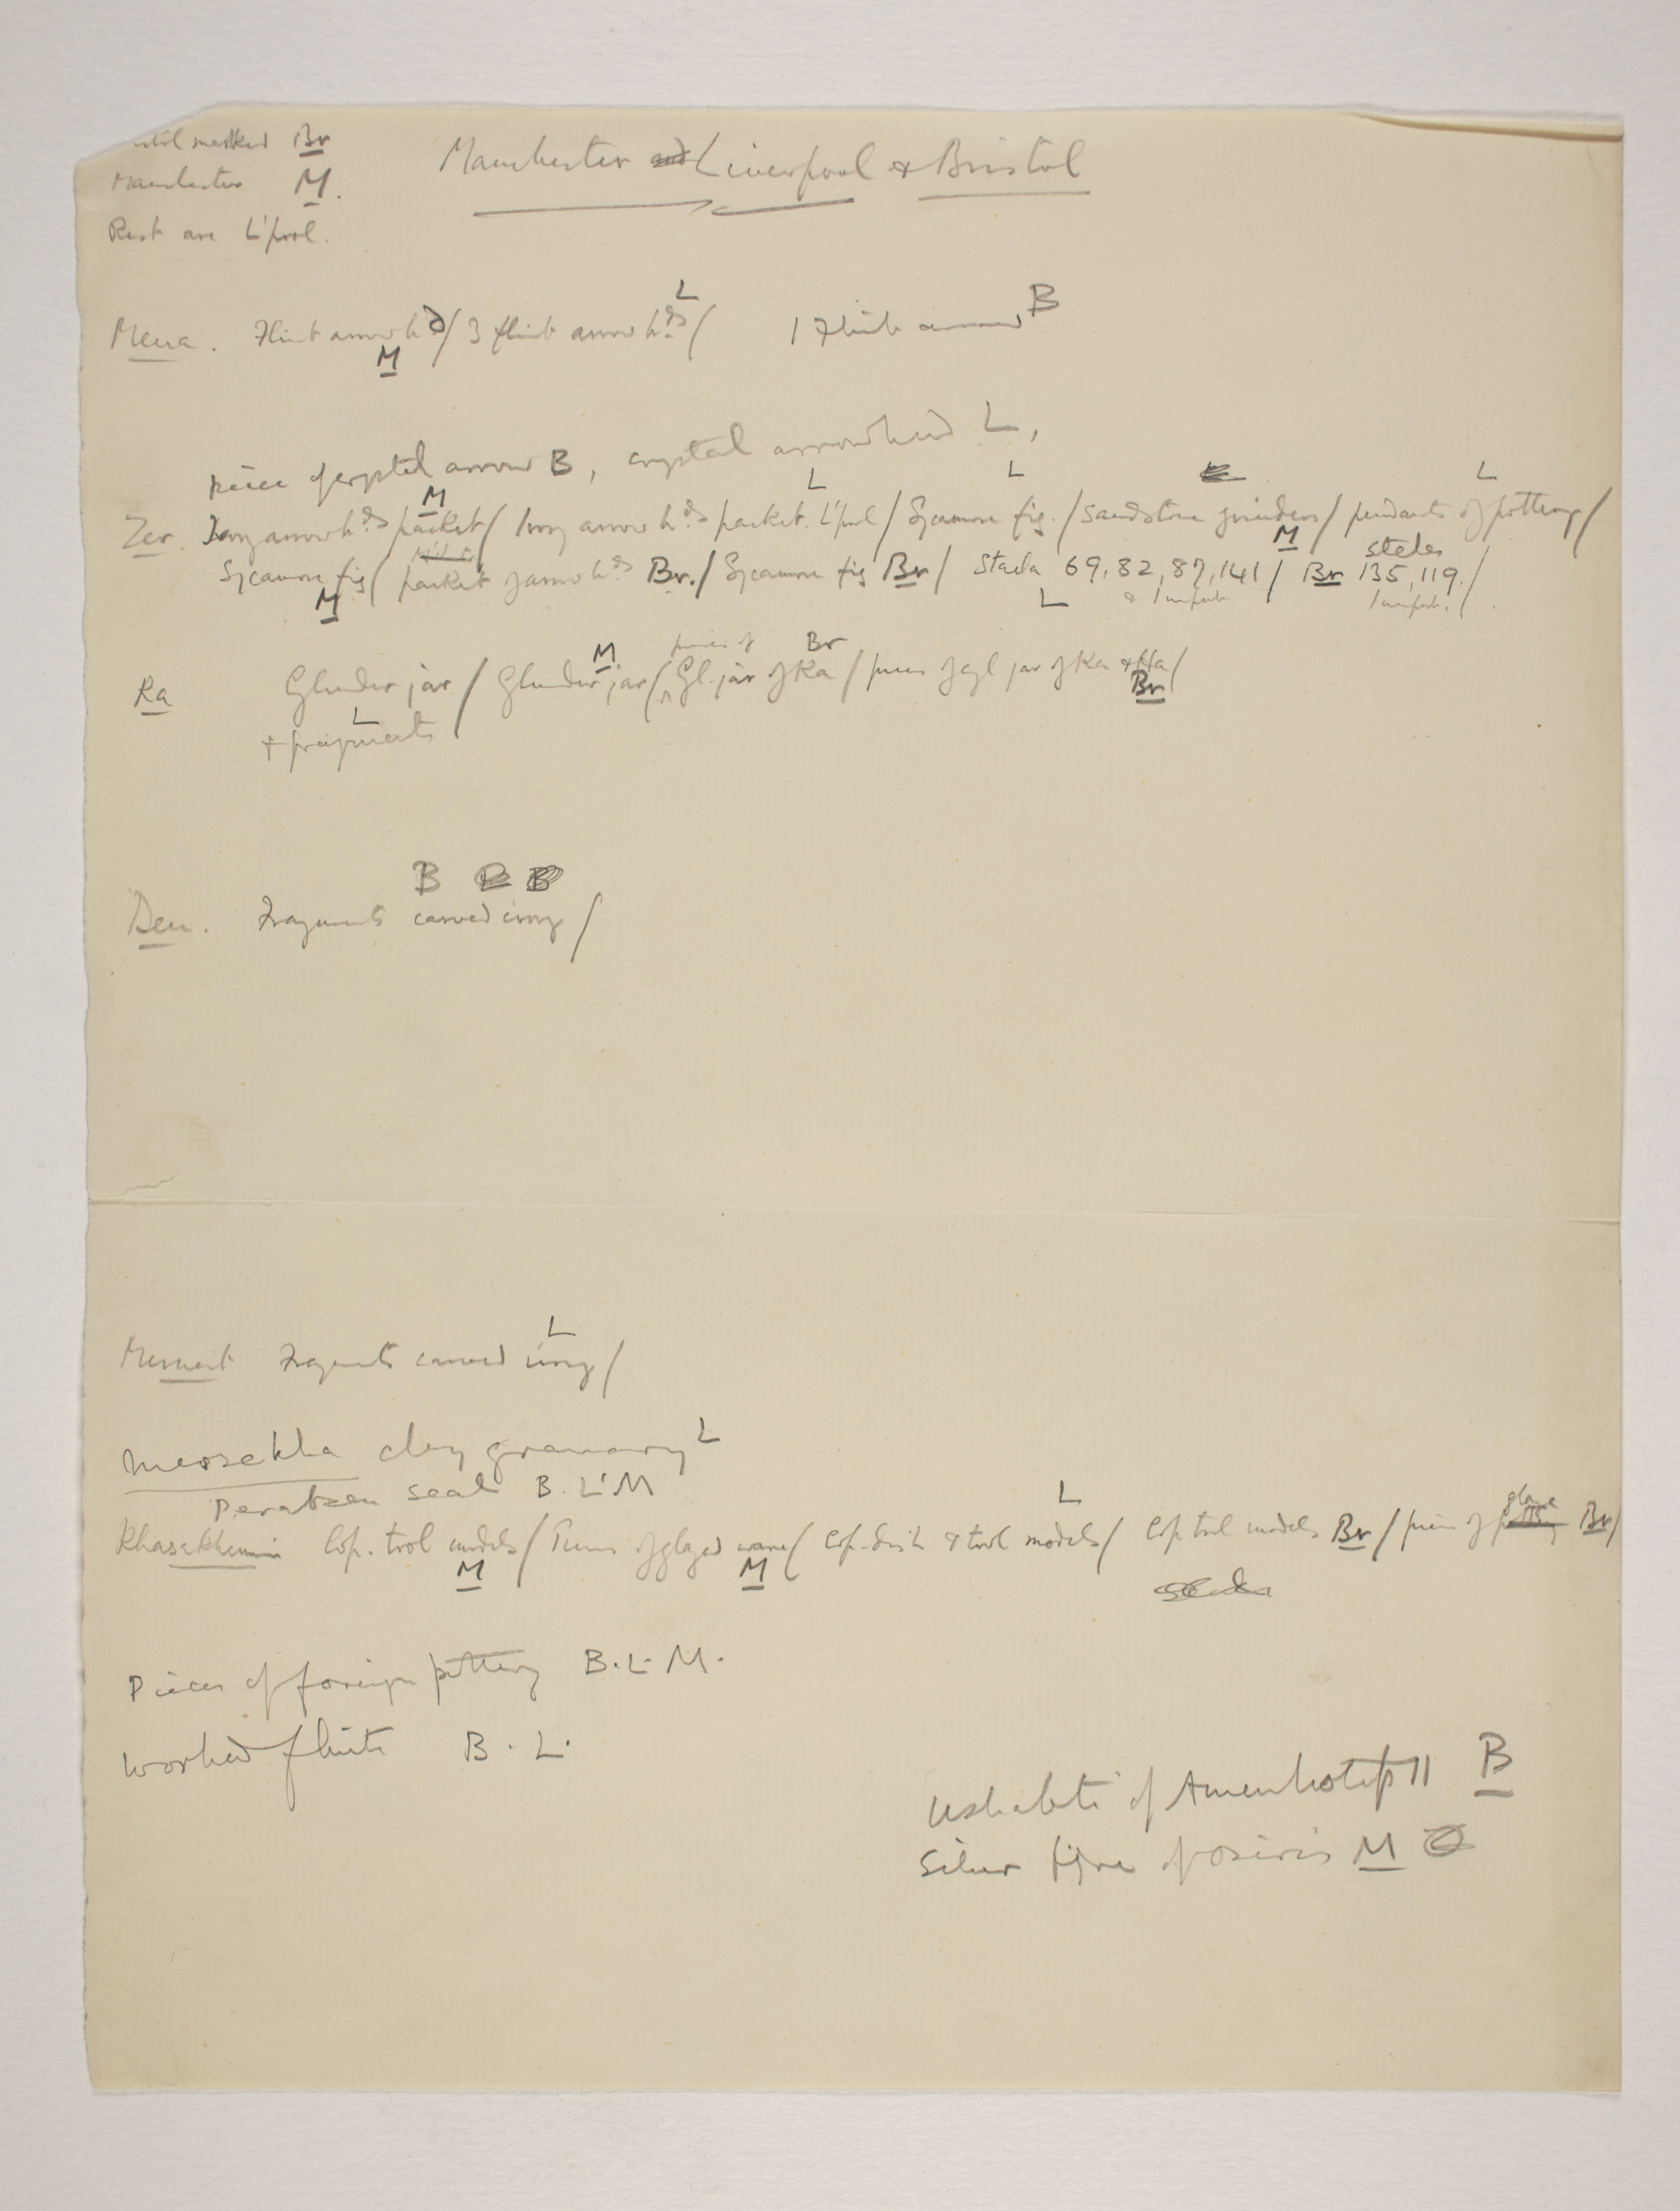 marked Br
Manchester M.
Rest are L'pool.
Manchester and Liverpool & Bristol
L
B
Mena. Flint arrow hd / 3 flint arrow hds / 1 Flint arrow
M
piece of crystal arrow B, crystal arrowhead L,
M L L L
Zer. Ivory arrow hds packet / Ivory arrow hds packet. L'pool / Sycamore fig. / Sandstone grinders / pendants of pottery /
M steles
Sycamore fig / packet of arrow hds Br. / Sycamore fig Br / Staela 69, 82, 87, 141 / Br 135, 119. /
M L & 1 imperf. 1 imperf.
M pieces of Br
Ra Cylinder jar / Cylinder jar / Cyl. jar of Ka / pieces of cyl jar of Ka & Ha /
L Br
+ fragments
B B B
Den. Fragments carved ivory /
L
Mersekha Fragments carved ivory /
Mersekha clay granary L
Perabsen seal B. L. M
L
Khasekhemui Cop. tool models / Pieces of glazed ware / Cop. dish & tool models / Cop tool models Br / piece of glaze Br /
M M
Pieces of foreign pottery B. L. M.
Worked flints B. L.
Ushabti of Amenhotep II B
Silver figre of Osiris M